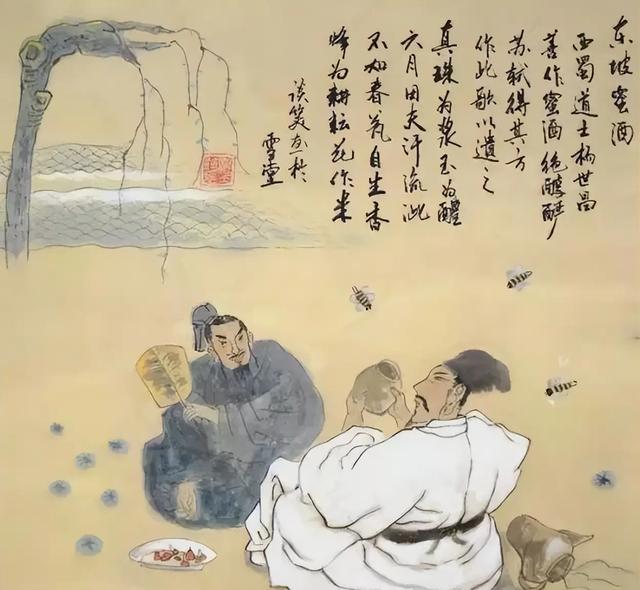 东坡蜜酒
西蜀道士杨世昌
善作蜜酒绝醇酽
苏轼得其方
作此歌以遗之
真珠为浆玉为醴
六月田夫汗流泚
不如春瓮自生香
蜂为耕耘花作米
谈笑於
雪堂